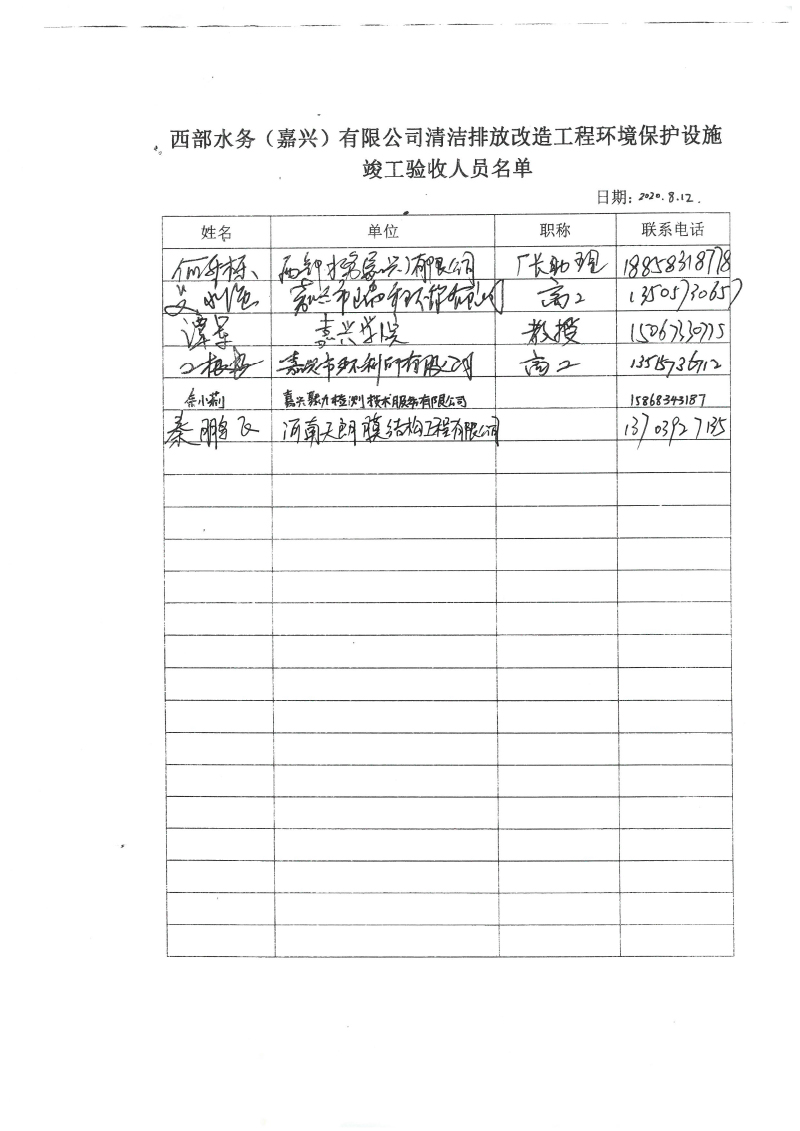 西部水务（嘉兴）有限公司清洁排放改造工程环境保护设施
竣工验收人员名单
日期：2020.8.12.
姓名 单位 职称 联系电话
西部水务(嘉兴)有限公司 厂长助理 18858318778
嘉兴市 高工 13505730657
谭军 嘉兴学院 教授 15067330775
嘉兴市环科所有限公司 高工 13515736712
余小莉 嘉兴聚力检测技术服务有限公司 15868343187
秦鹏飞 河南天朗膜结构工程有限公司 13703927135